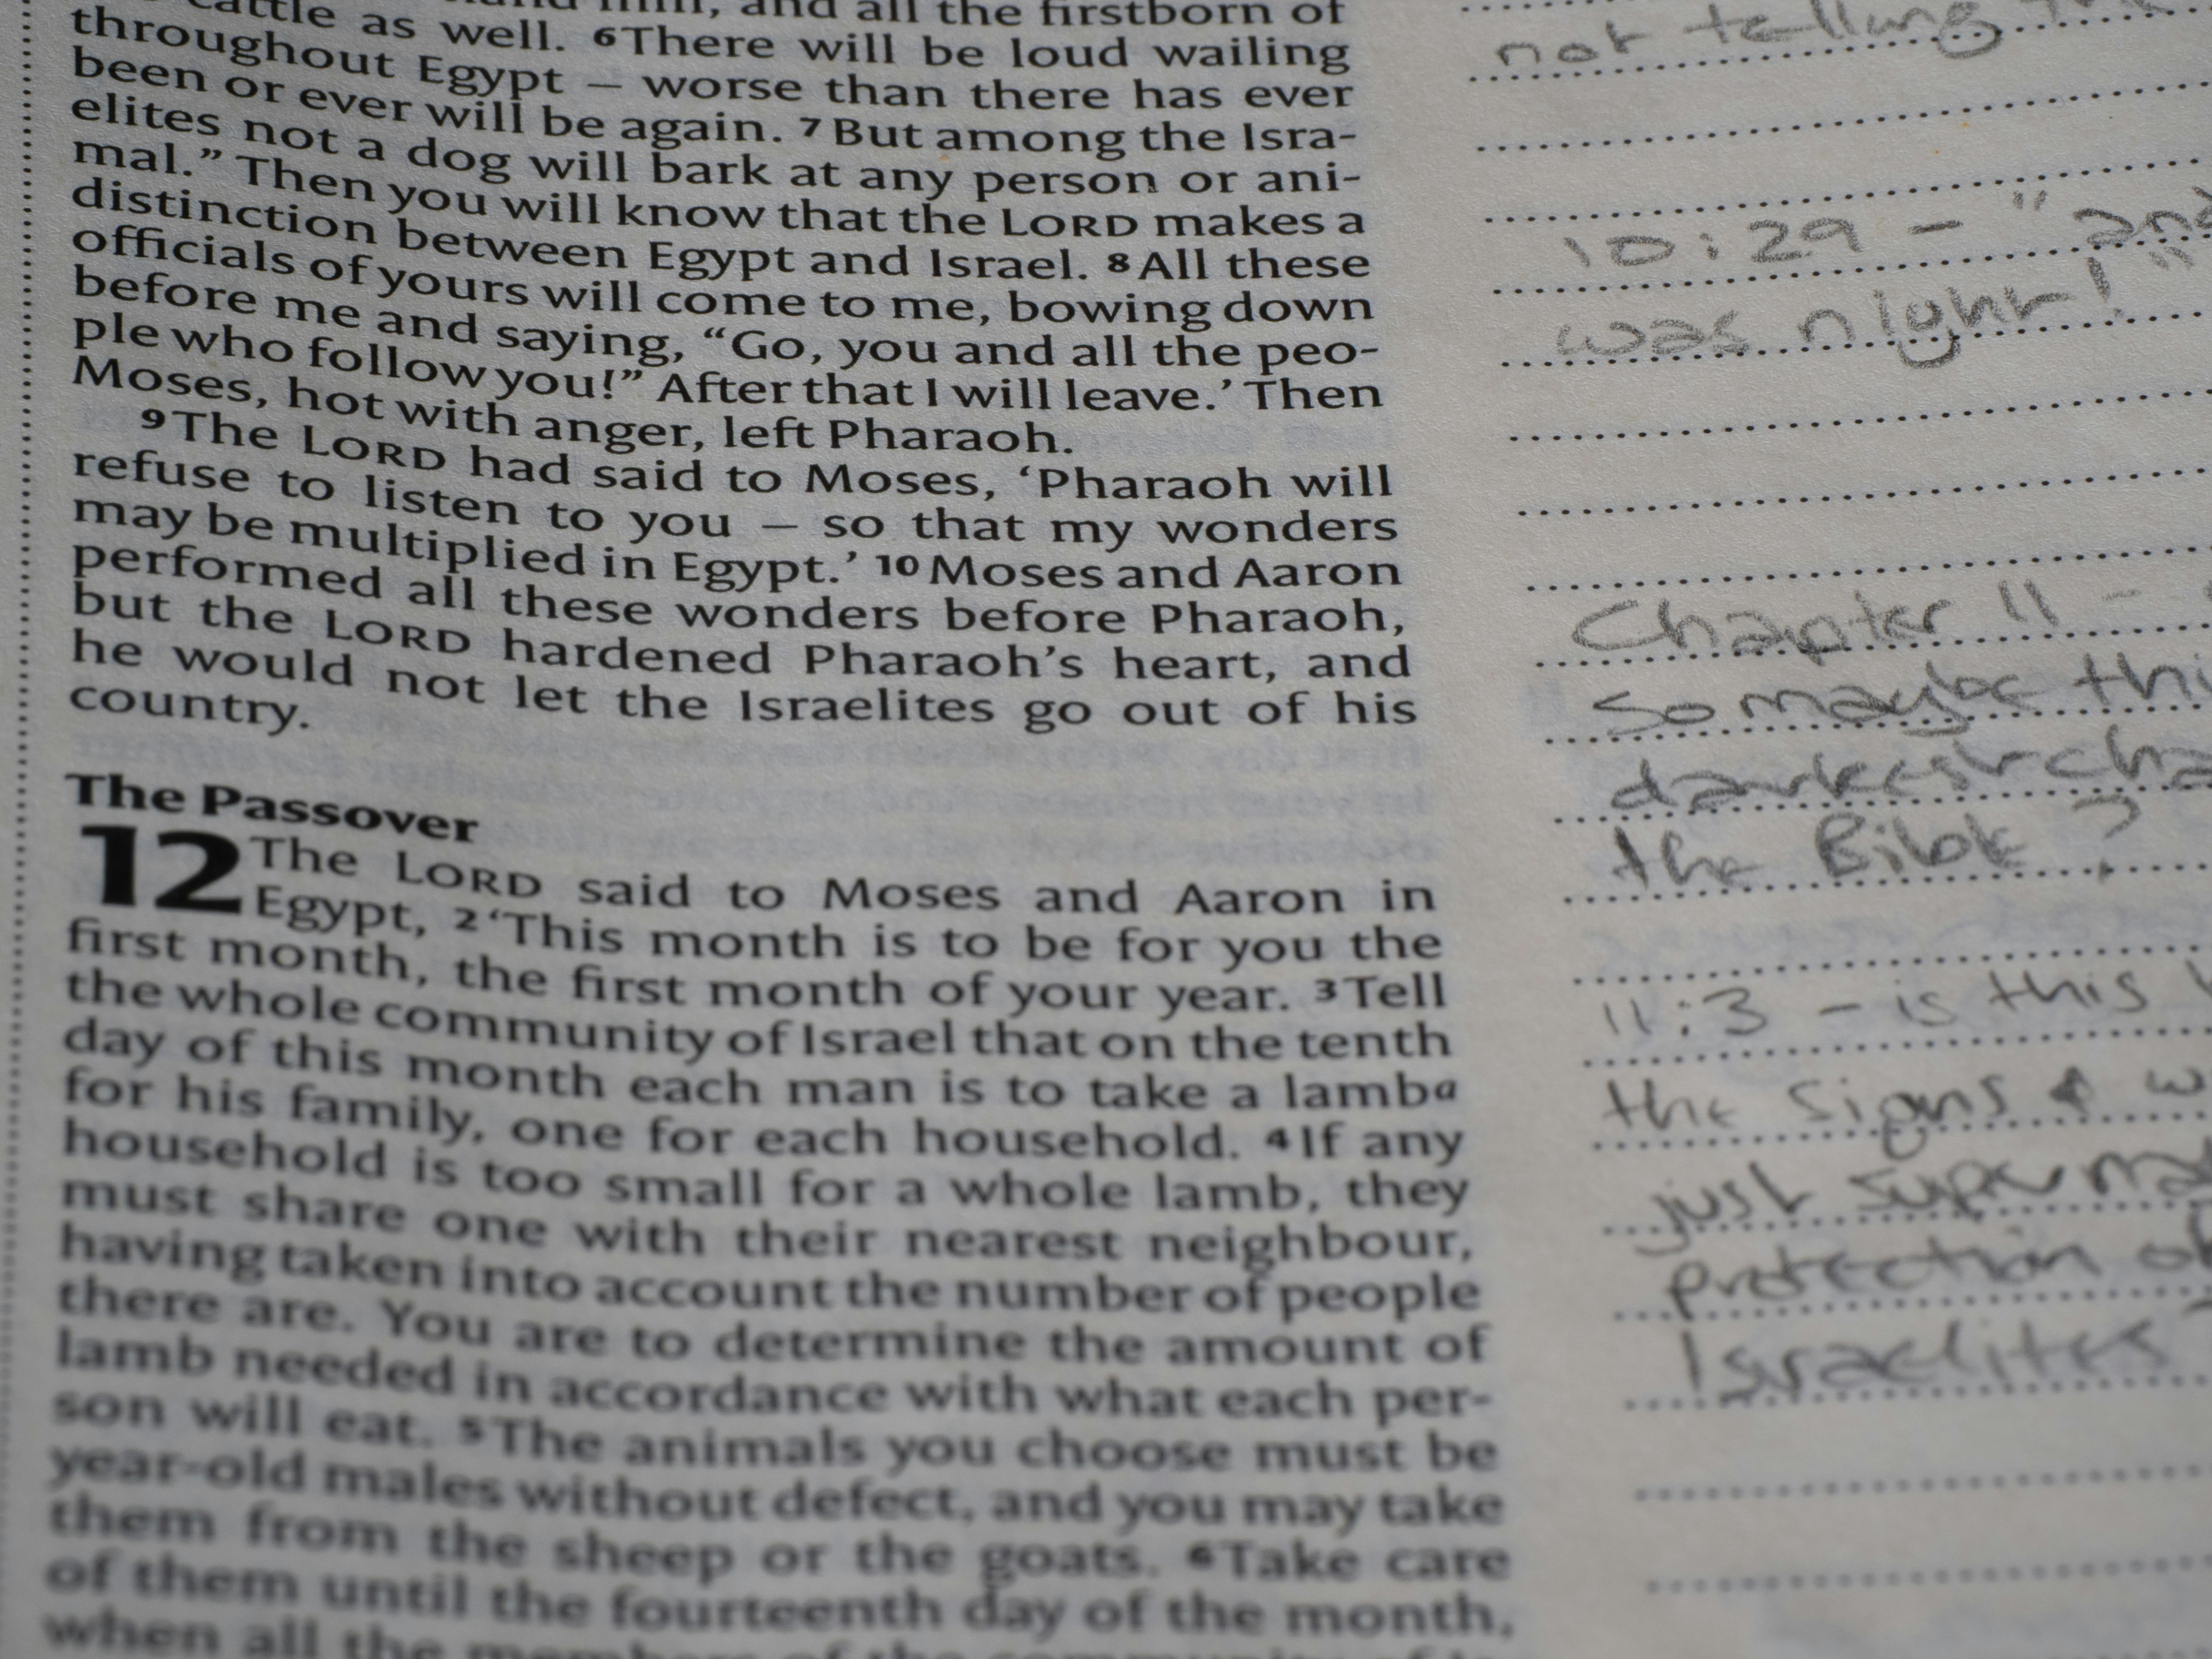 cattle as well. 6 There will be loud wailing
throughout Egypt – worse than there has ever
been or ever will be again. 7 But among the Isra-
elites not a dog will bark at any person or ani-
mal.” Then you will know that the LORD makes a
distinction between Egypt and Israel. 8 All these
officials of yours will come to me, bowing down
before me and saying, “Go, you and all the peo-
ple who follow you!” After that I will leave.’ Then
Moses, hot with anger, left Pharaoh.
9 The LORD had said to Moses, ‘Pharaoh will
refuse to listen to you – so that my wonders
may be multiplied in Egypt.’ 10 Moses and Aaron
performed all these wonders before Pharaoh,
but the LORD hardened Pharaoh’s heart, and
he would not let the Israelites go out of his
country.
The Passover
12 The LORD said to Moses and Aaron in
Egypt, 2 ‘This month is to be for you the
first month, the first month of your year. 3 Tell
the whole community of Israel that on the tenth
day of this month each man is to take a lamb a
for his family, one for each household. 4 If any
household is too small for a whole lamb, they
must share one with their nearest neighbour,
having taken into account the number of people
there are. You are to determine the amount of
lamb needed in accordance with what each per-
son will eat. 5 The animals you choose must be
year-old males without defect, and you may take
them from the sheep or the goats. 6 Take care
of them until the fourteenth day of the month,
when all the members of the community of
not telling
10:29 – "and
was night!"
Chapter 11 –
so maybe thi
darkest cha
the Bible?
11:3 – is this
the signs & w
just superna
protection of
Israelites?